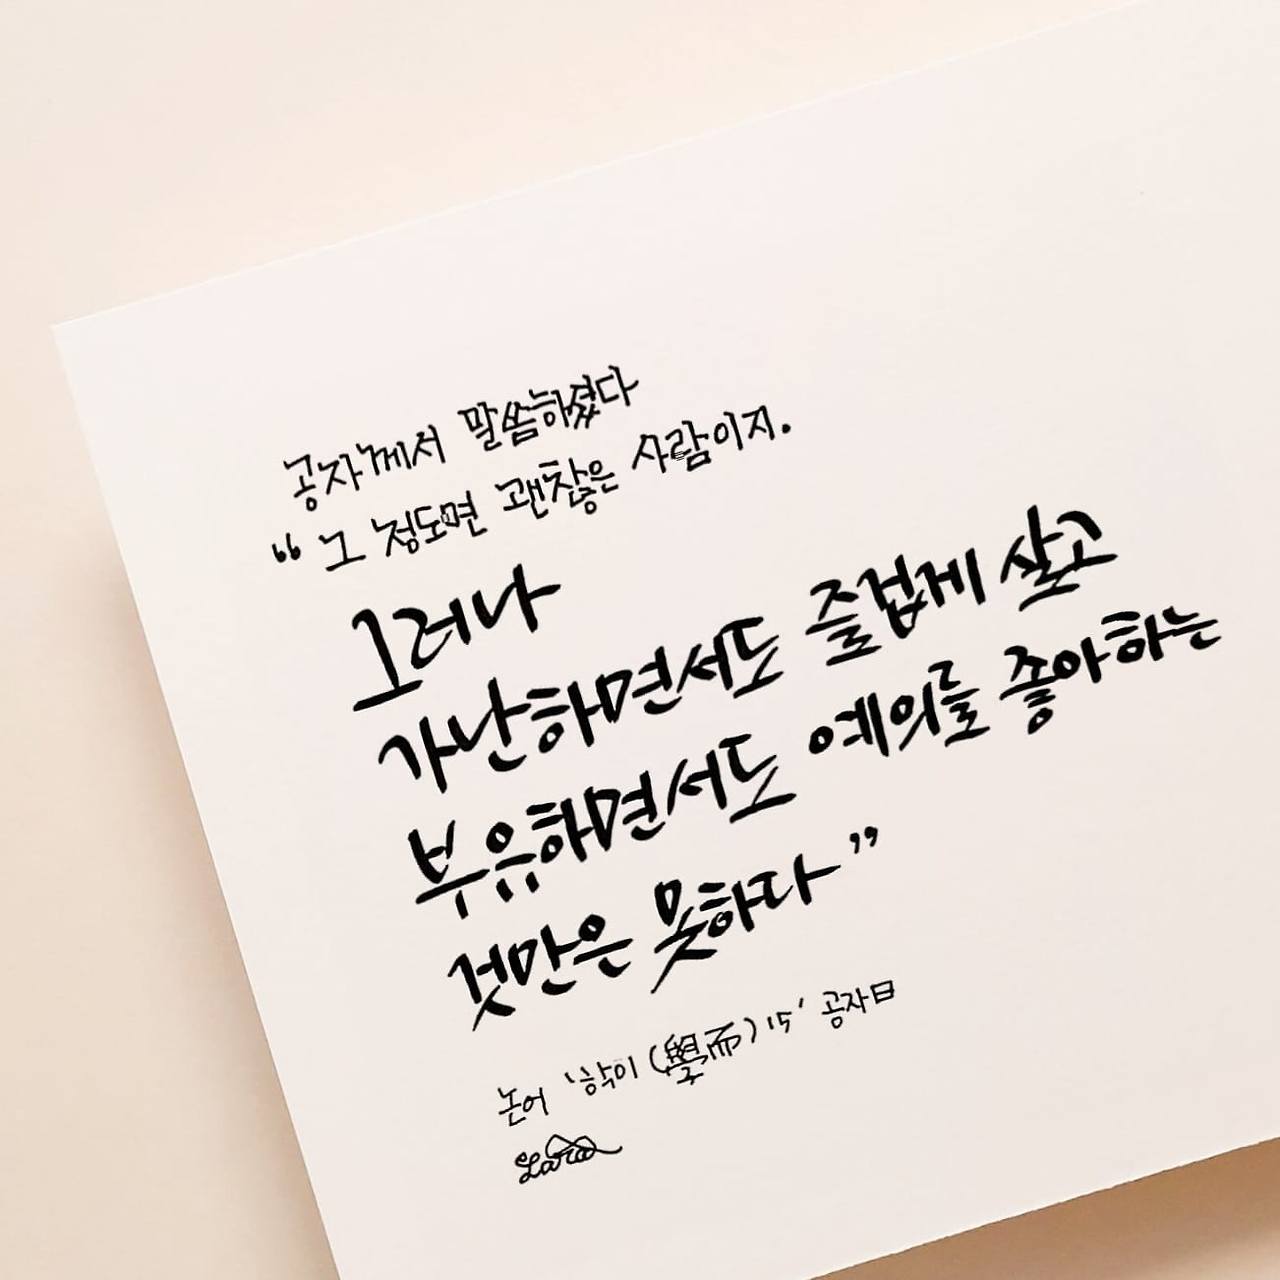 공자께서 말씀하셨다
“ 그 정도면 괜찮은 사람이지.
그러나
가난하면서도 즐겁게 살고
부유하면서도 예의를 좋아하는
것만은 못하다”
논어 '학이(學而)15' 공자曰